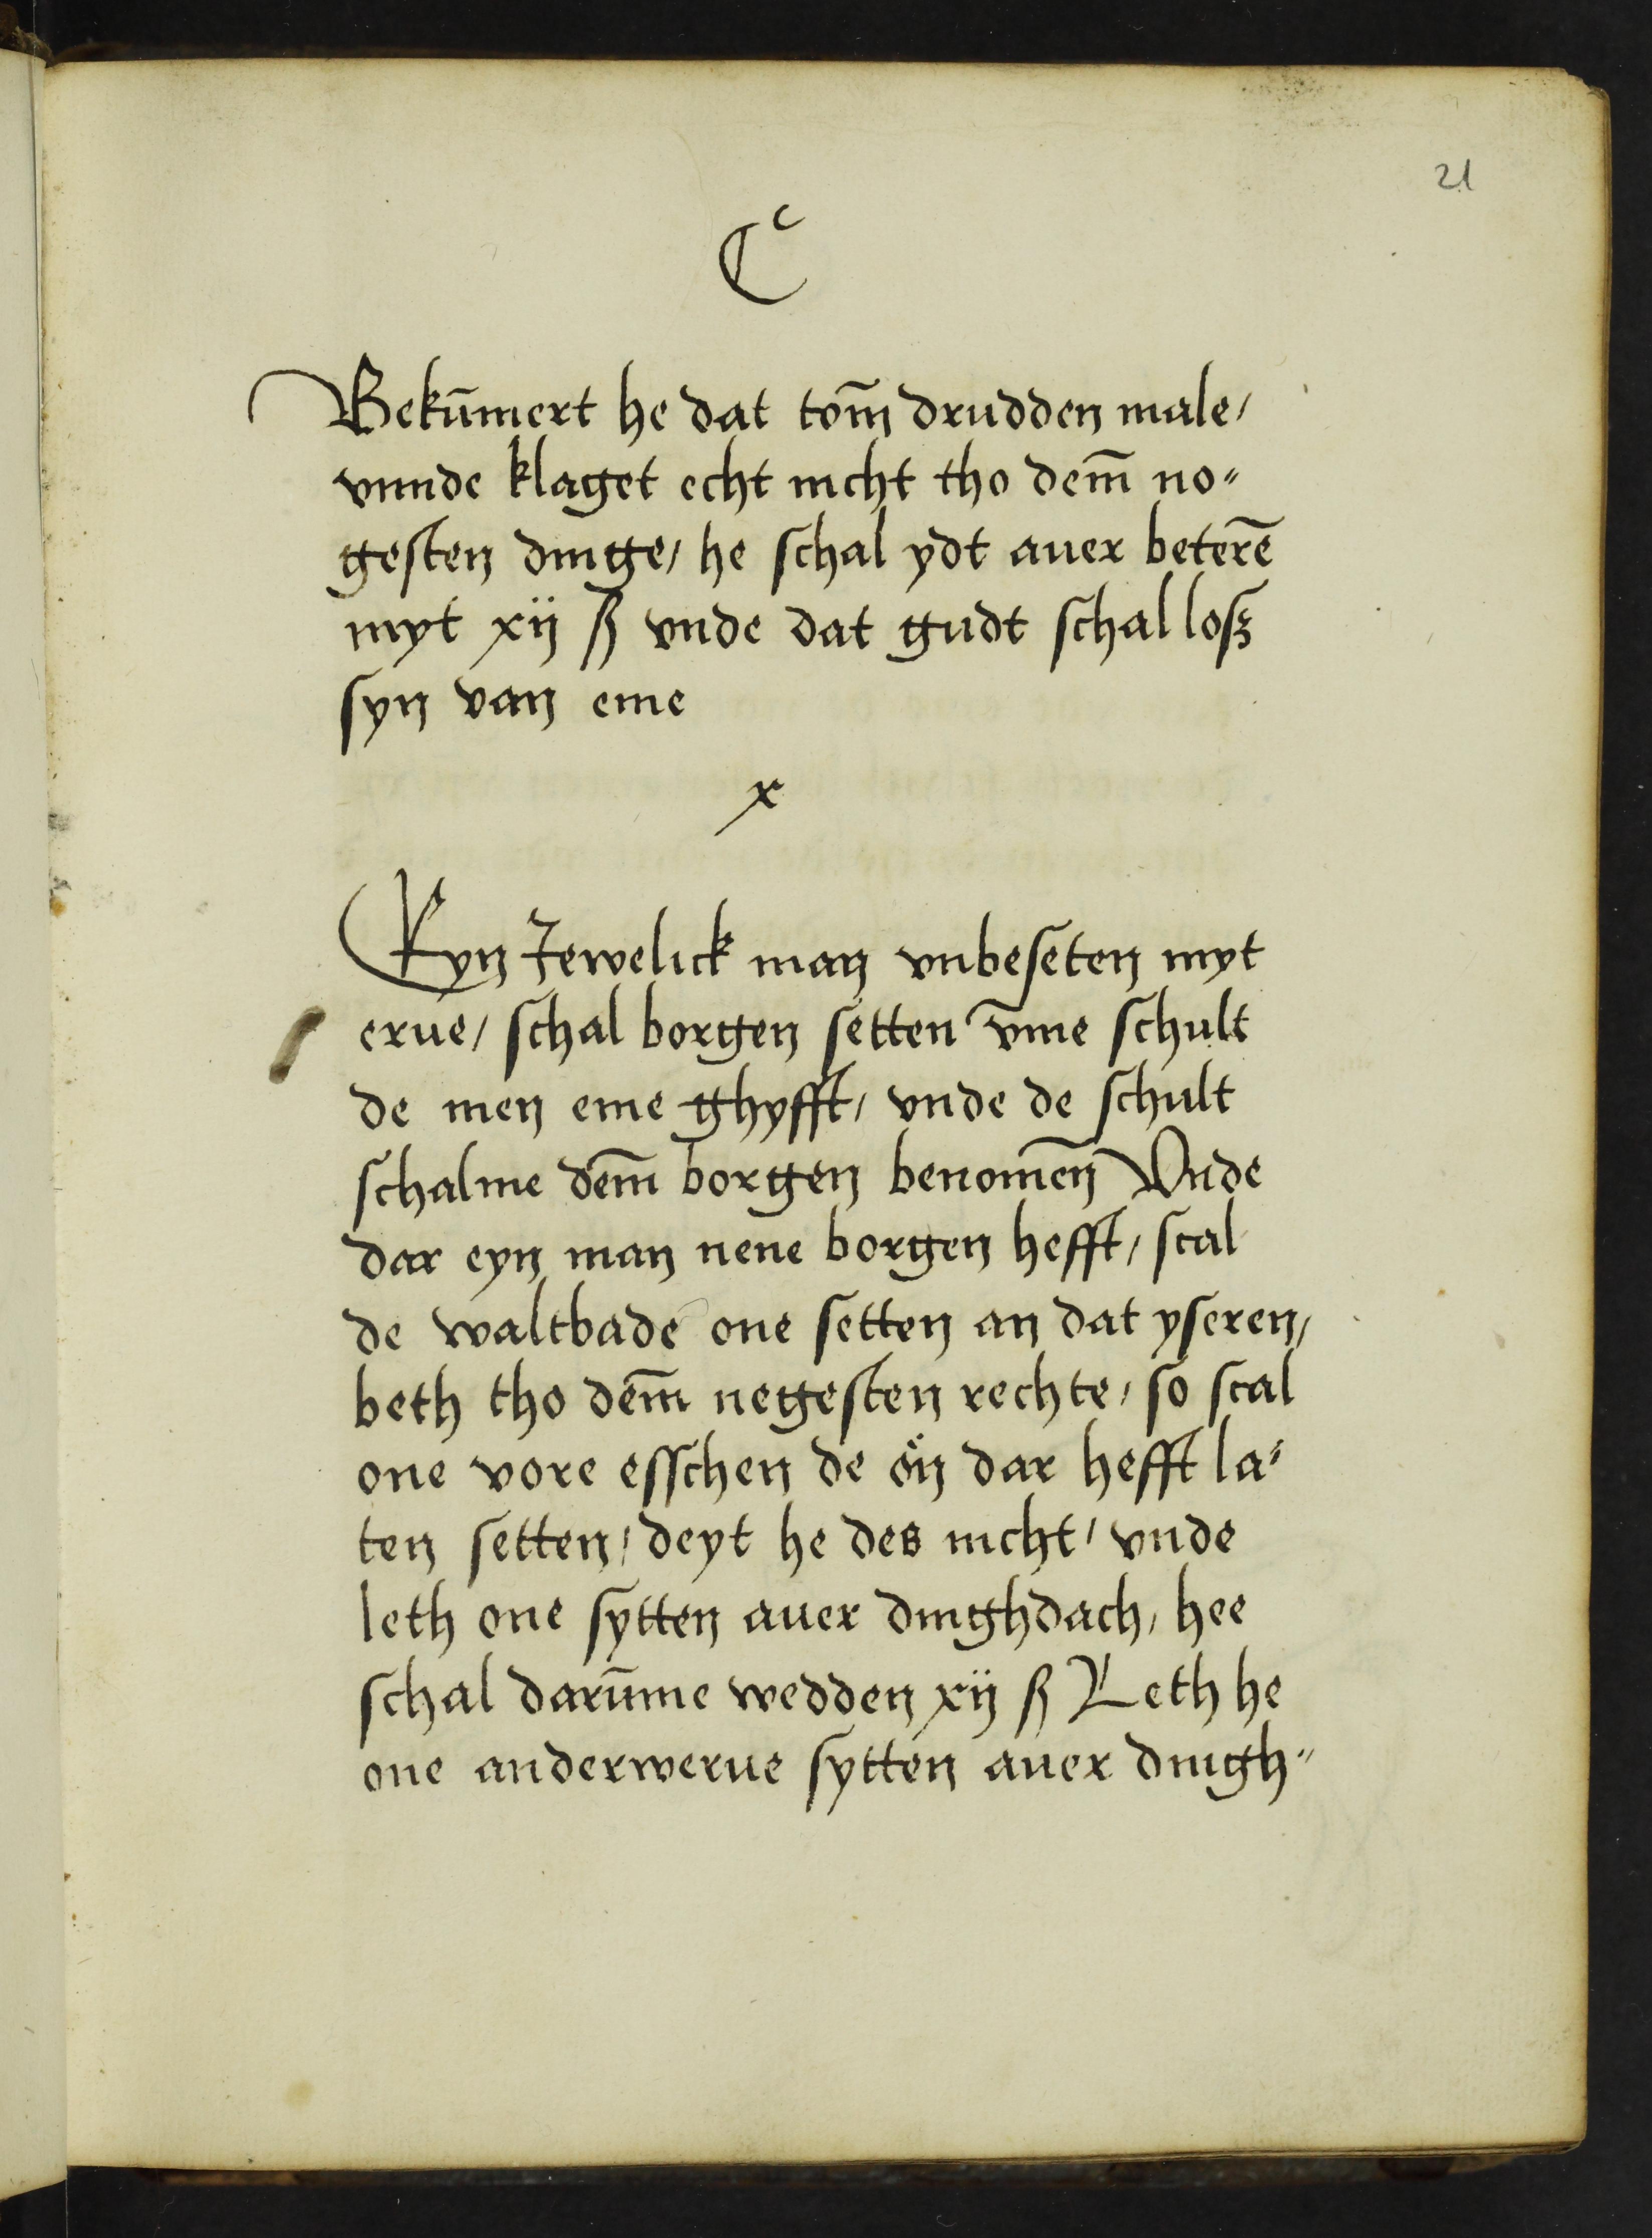 21
C
Bekūmert he dat tom̄ drudden male/
vnnde klaget echt nicht tho dem̄ no⸗
gesten dinge/ he schal ydt auer beterē
myt xij ß vnde dat gudt schal loß
syn van eme
x
Eyn Jewelick man vnbeseten myt
erue/ schal borgen setten vm̄e schult
de men eme ghyfft/ vnde de schult
schalme dem̄ borgen benomēn Vnde
dar eyn man nene borgen hefft/ scal
de waltbade one setten an dat yseren/
beth tho dem̄ negesten rechte/ so scal
one vore esschen de ön dar hefft la⸗
ten setten/ deyt he des nicht/ vnde
leth one sytten auer dinghdach/ hee
schal darūme wedden xij ß Leth he
one anderwerue sytten auer dingh⸗